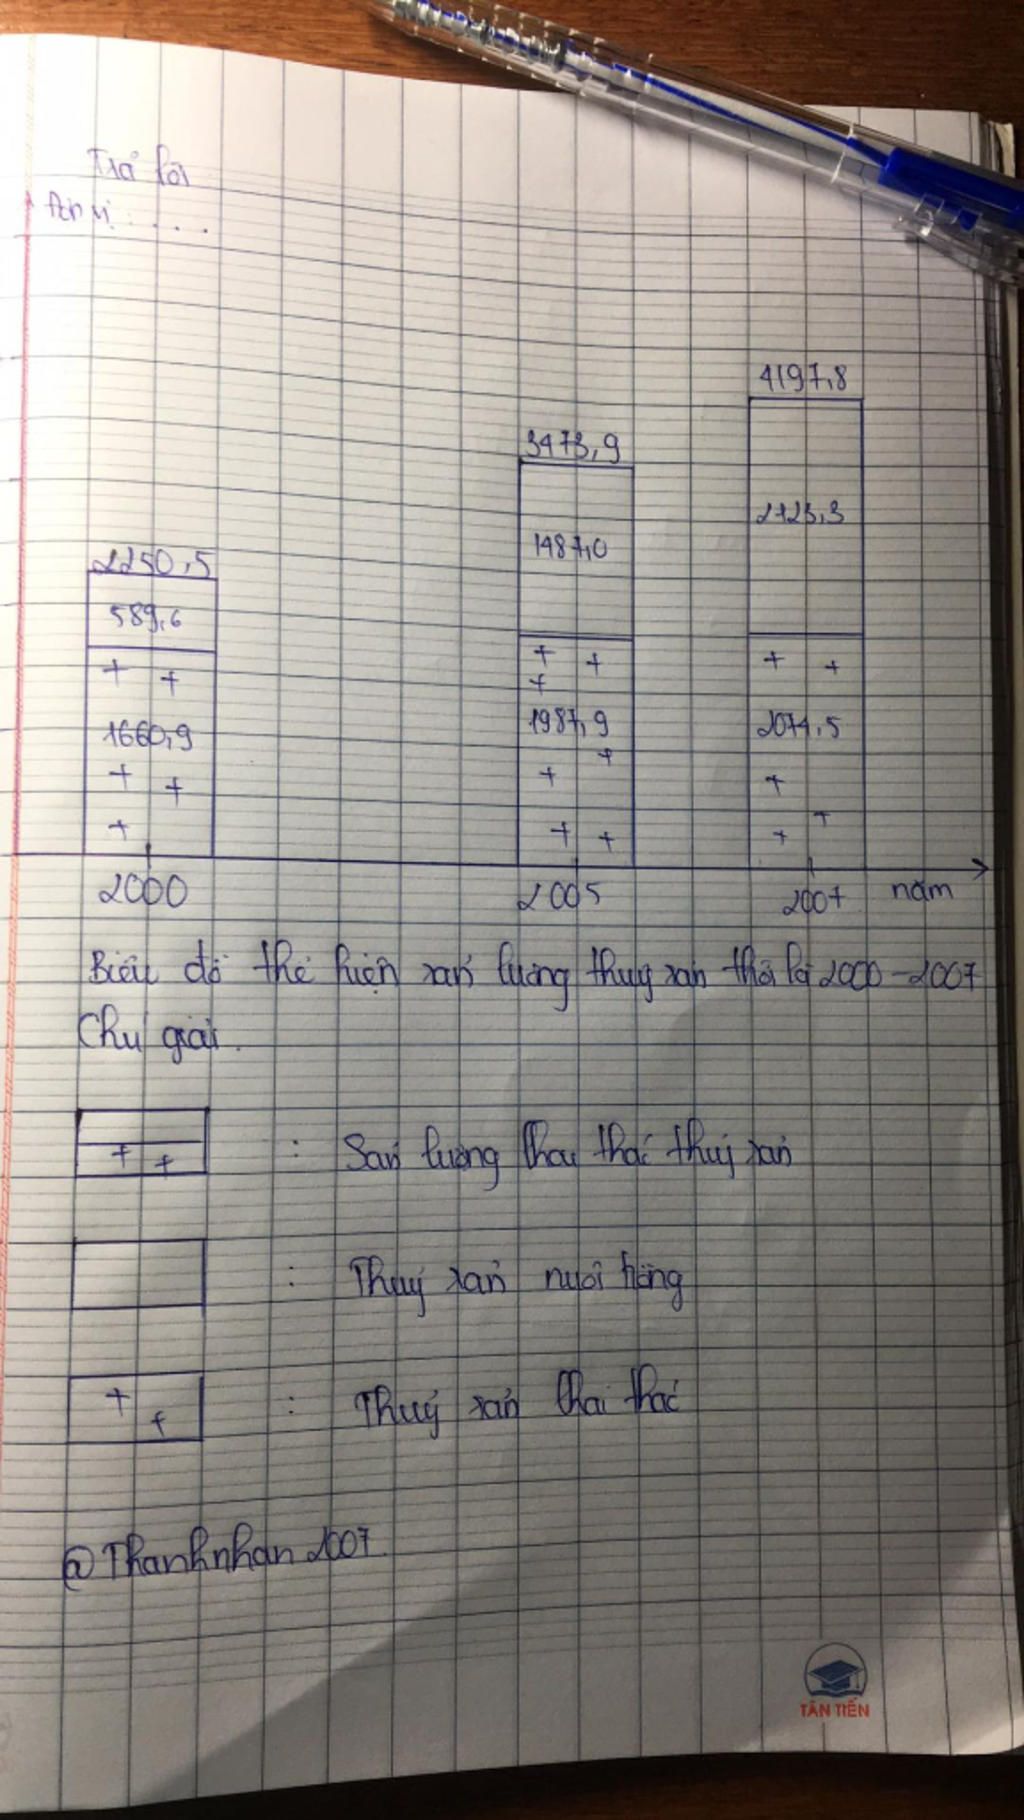 Trả lời
4197,8
3473,9
2123,3
1487,0
2250,5
589,6
1660,9
1987,9
2074,5
2000
2005
2007
năm
Biểu đồ thể hiện sản lượng thuỷ sản thời kì 2000-2007
Chú giải.
: Sản lượng khai thác thuỷ sản
: Thuỷ sản nuôi trồng
: Thuỷ sản khai thác
@Thanhnhan2007
TÂN TIẾN